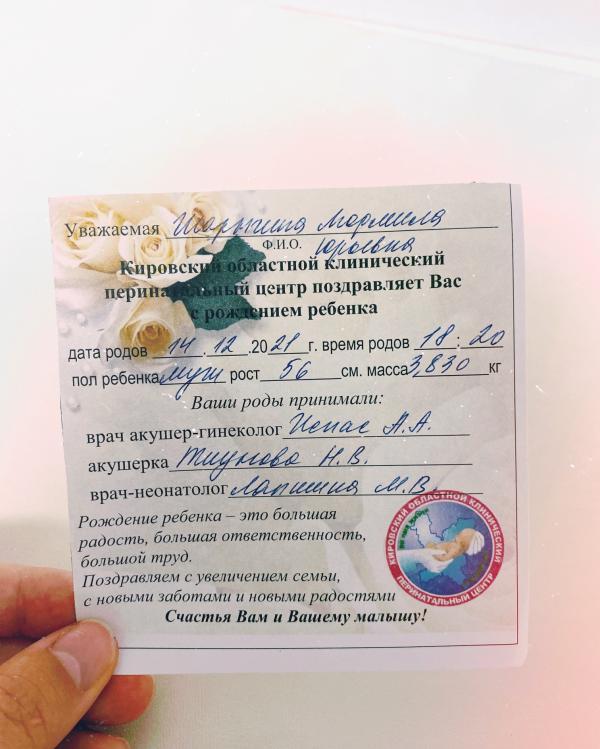 Уважаемая Шарыгина Людмила
Ф.И.О. Юрьевна
Кировский областной клинический
перинатальный центр поздравляет Вас
с рождением ребенка
дата родов 14.12.2021 г. время родов 18:20
пол ребенка муж рост 56 см. масса 3,830 кг
Ваши роды принимали:
врач акушер-гинеколог Испас А.А.
акушерка Тиунова Н.В.
врач-неонатолог Лапшина М.В.
Рождение ребенка – это большая
радость, большая ответственность,
большой труд.
Поздравляем с увеличением семьи,
с новыми заботами и новыми радостями
Счастья Вам и Вашему малышу!
КИРОВСКИЙ ОБЛАСТНОЙ КЛИНИЧЕСКИЙ
ПЕРИНАТАЛЬНЫЙ ЦЕНТР